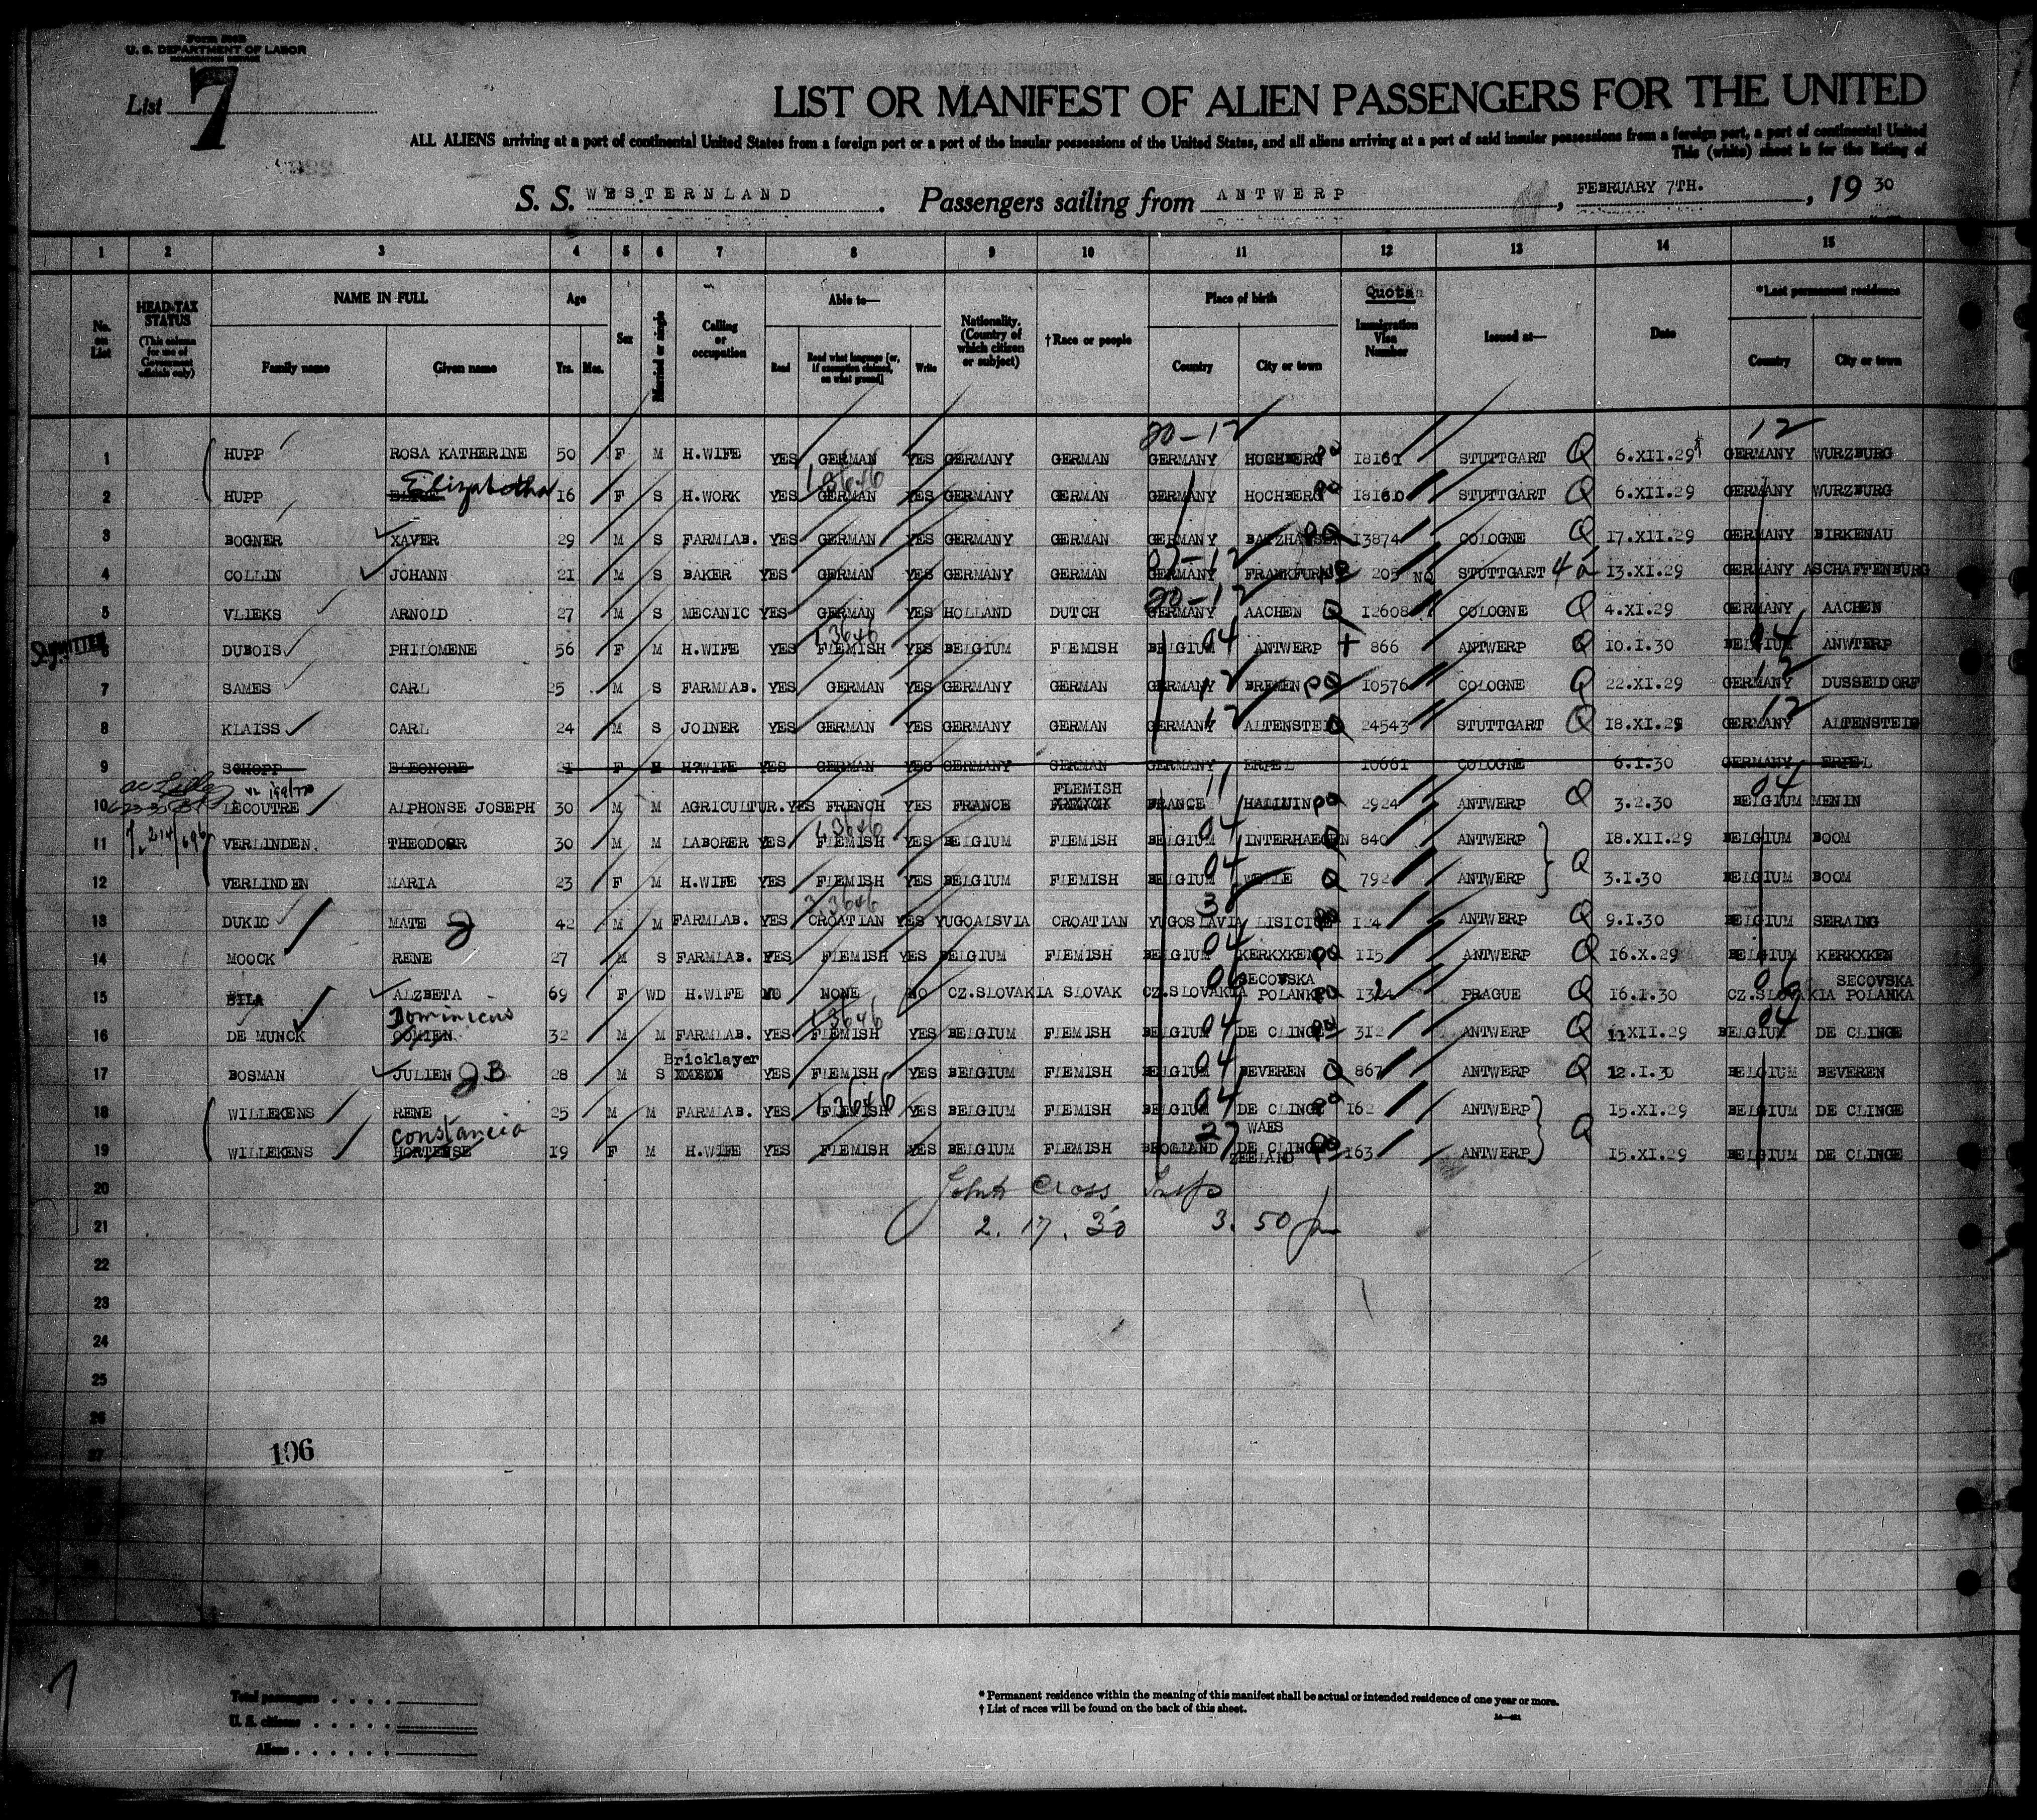 Form 500B
U. S. DEPARTMENT OF LABOR
IMMIGRATION SERVICE
List 7
LIST OR MANIFEST OF ALIEN PASSENGERS FOR THE UNITED
ALL ALIENS arriving at a port of continental United States from a foreign port or a port of the insular possessions of the United States, and all aliens arriving at a port of said insular possessions from a foreign port, a port of continental United
This (white) sheet is for the listing of
S. S. WESTERNLAND . Passengers sailing from ANTWERP , FEBRUARY 7TH. , 19 30
1 2 3 4 5 6 7 8 9 10 11 12 13 14 15
No. on List
HEAD-TAX STATUS (This column for use of Government officials only)
NAME IN FULL Family name Given name
Age Yrs. Mos.
Sex
Married or single
Calling or occupation
Able to— Read Read what language [or, if exemption claimed, on what ground] Write
Nationality. (Country of which citizen or subject)
†Race or people
Place of birth Country City or town
Quota Immigration Visa Number
Issued at—
Date
*Last permanent residence Country City or town
20-12 12
1 HUPP ROSA KATHERINE 50 F M H.WIFE YES GERMAN YES GERMANY GERMAN GERMANY HOCHBERG 18161 STUTTGART Q 6.XII.29 GERMANY WURZBURG
Elizabetha
2 HUPP 16 F S H.WORK YES GERMAN YES GERMANY GERMAN GERMANY HOCHBERG 18160 STUTTGART Q 6.XII.29 GERMANY WURZBURG
3 BOGNER XAVER 29 M S FARMLAB. YES GERMAN YES GERMANY GERMAN GERMANY 13874 COLOGNE Q 17.XII.29 GERMANY BIRKENAU
4 COLLIN JOHANN 21 M S BAKER YES GERMAN YES GERMANY GERMAN GERMANY 205 NQ STUTTGART 13.XI.29 GERMANY ASCHAFFENBURG
20-12
5 VLIEKS ARNOLD 27 M S MECANIC YES GERMAN YES HOLLAND DUTCH GERMANY AACHEN Q 12608 COLOGNE Q 4.XI.29 GERMANY AACHEN
6 DUBOIS PHILOMENE 56 F M H.WIFE YES FLEMISH YES BELGIUM FLEMISH BELGIUM 04 ANTWERP + 866 ANTWERP Q 10.I.30 BELGIUM 04 ANWTERP
7 SAMES CARL 25 M S FARMLAB. YES GERMAN YES GERMANY GERMAN GERMANY 12 BREMEN 10576 COLOGNE Q 22.XI.29 GERMANY 12 DUSSEIDORF
8 KLAISS CARL 24 M S JOINER YES GERMAN YES GERMANY GERMAN GERMANY 12 24543 STUTTGART Q 18.XI.29 GERMANY 12 ALTENSTEIG
9 SCHOPP ELEONORE 21 F M H?WIFE YES GERMAN YES GERMANY GERMAN GERMANY ERPEL 10661 COLOGNE 6.I.30 GERMANY ERPEL
FLEMISH
10 LECOUTRE ALPHONSE JOSEPH 30 M M AGRICULTUR. YES FRENCH YES FRANCE XXXXXX FRANCE 11 HALLUIN 2924 ANTWERP Q 3.2.30 BELGIUM 04 MENIN
11 VERLINDEN. THEODOOR 30 M M LABORER YES FLEMISH YES BELGIUM FLEMISH BELGIUM 04 840 ANTWERP 18.XII.29 BELGIUM BOOM
12 VERLINDEN MARIA 23 F M H.WIFE YES FLEMISH YES BELGIUM FLEMISH BELGIUM 04 WELLE Q 792 ANTWERP Q 3.1.30 BELGIUM BOOM
13 DUKIC MATE 42 M M FARMLAB. YES CROATIAN YES YUGOALSVIA CROATIAN YUGOSLAVIA 124 ANTWERP Q 9.I.30 BELGIUM SERAING
14 MOOCK RENE 27 M S FARMLAB. YES FLEMISH YES BELGIUM FLEMISH BELGIUM 04 KERKXKEN 115 ANTWERP Q 16.X.29 BELGIUM KERKXKEN
SECOVSKA SECOVSKA
15 BILA ALZBETA 69 F WD H.WIFE NO NONE NO CZ.SLOVAKIA SLOVAK CZ.SLOVAKIA 06 POLANKA PRAGUE Q 16.1.30 CZ.SLOVAKIA 06 POLANKA
Dominicus
16 DE MUNCK 32 M M FARMLAB. YES FLEMISH YES BELGIUM FLEMISH BELGIUM 04 DE CLINGE 312 ANTWERP Q 11 XII.29 BELGIUM 04 DE CLINGE
Bricklayer
17 BOSMAN JULIEN 28 M S XXXXX YES FLEMISH YES BELGIUM FLEMISH BELGIUM 04 BEVEREN Q 867 ANTWERP Q 12.I.30 BELGIUM BEVEREN
18 WILLEKENS RENE 25 M M FARMLAB. YES FLEMISH YES BELGIUM FLEMISH BELGIUM 04 DE CLINGE 162 ANTWERP 15.XI.29 BELGIUM DE CLINGE
Constancia WAES
19 WILLEKENS HORTENSE 19 F M H.WIFE YES FLEMISH YES BELGIUM FLEMISH DE CLINGE 163 ANTWERP Q 15.XI.29 BELGIUM DE CLINGE
ZEELAND
20 John Cross Insp
21 2. 17. 30 3. 50 pm
22
23
24
25
26
27 106
Total passengers . . . .
U. S. citizens . . . . .
Aliens . . . . . .
* Permanent residence within the meaning of this manifest shall be actual or intended residence of one year or more.
† List of races will be found on the back of this sheet.